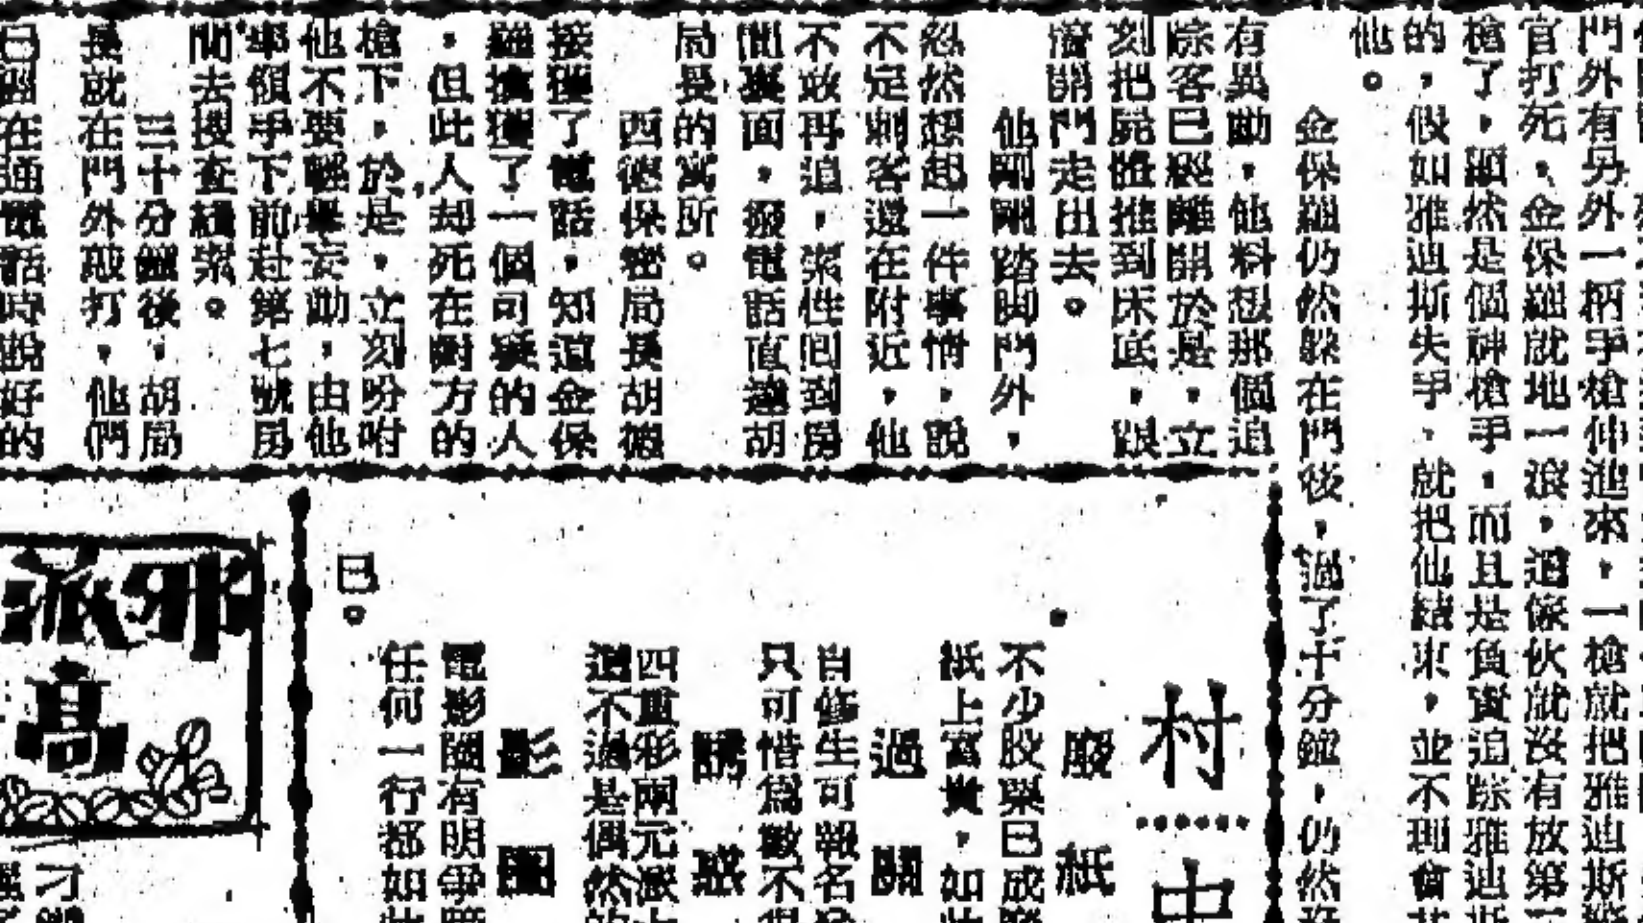 門外有另外一柄手槍伸進來，一槍就把雅迪斯
官打死，金保羅就地一滾，這傢伙就沒有放第
槍了，顯然是個神槍手，而且是負責追踪雅迪
的，假如雅迪斯失手，就把他結束，並不理會
他。
金保羅仍然躲在門後，過了十分鐘，仍然
有異動，他料想那個追
踪客已經離開於是，立
刻把屍體推到床底，跟
着開門走出去。
他剛剛踏脚門外，
忽然想起一件事情，說
不定刺客還在附近，他
不敢再追，索性囘到房
間裏面，撥電話直達胡
局長的寓所。
西德保密局長胡德
接獲了電話，知道金保
羅擒獲了一個可疑的人
，但此人却死在對方的
槍下，於是，立刻吩咐
他不要輕舉妄動，由他
率領手下前赴第七號房
間去搜查線索。
三十分鐘後，胡局
長就在門外敲打，他們
已經在通電話時說好的
村
廢紙
不少股票已成廢
紙上富貴，如此
過關
自修生可報名
只可惜爲數不
誘惑
四重彩兩元派
還不過是偶然的
影圈
電影圈有明爭暗
任何一行都如此
已。
邪派
高
才